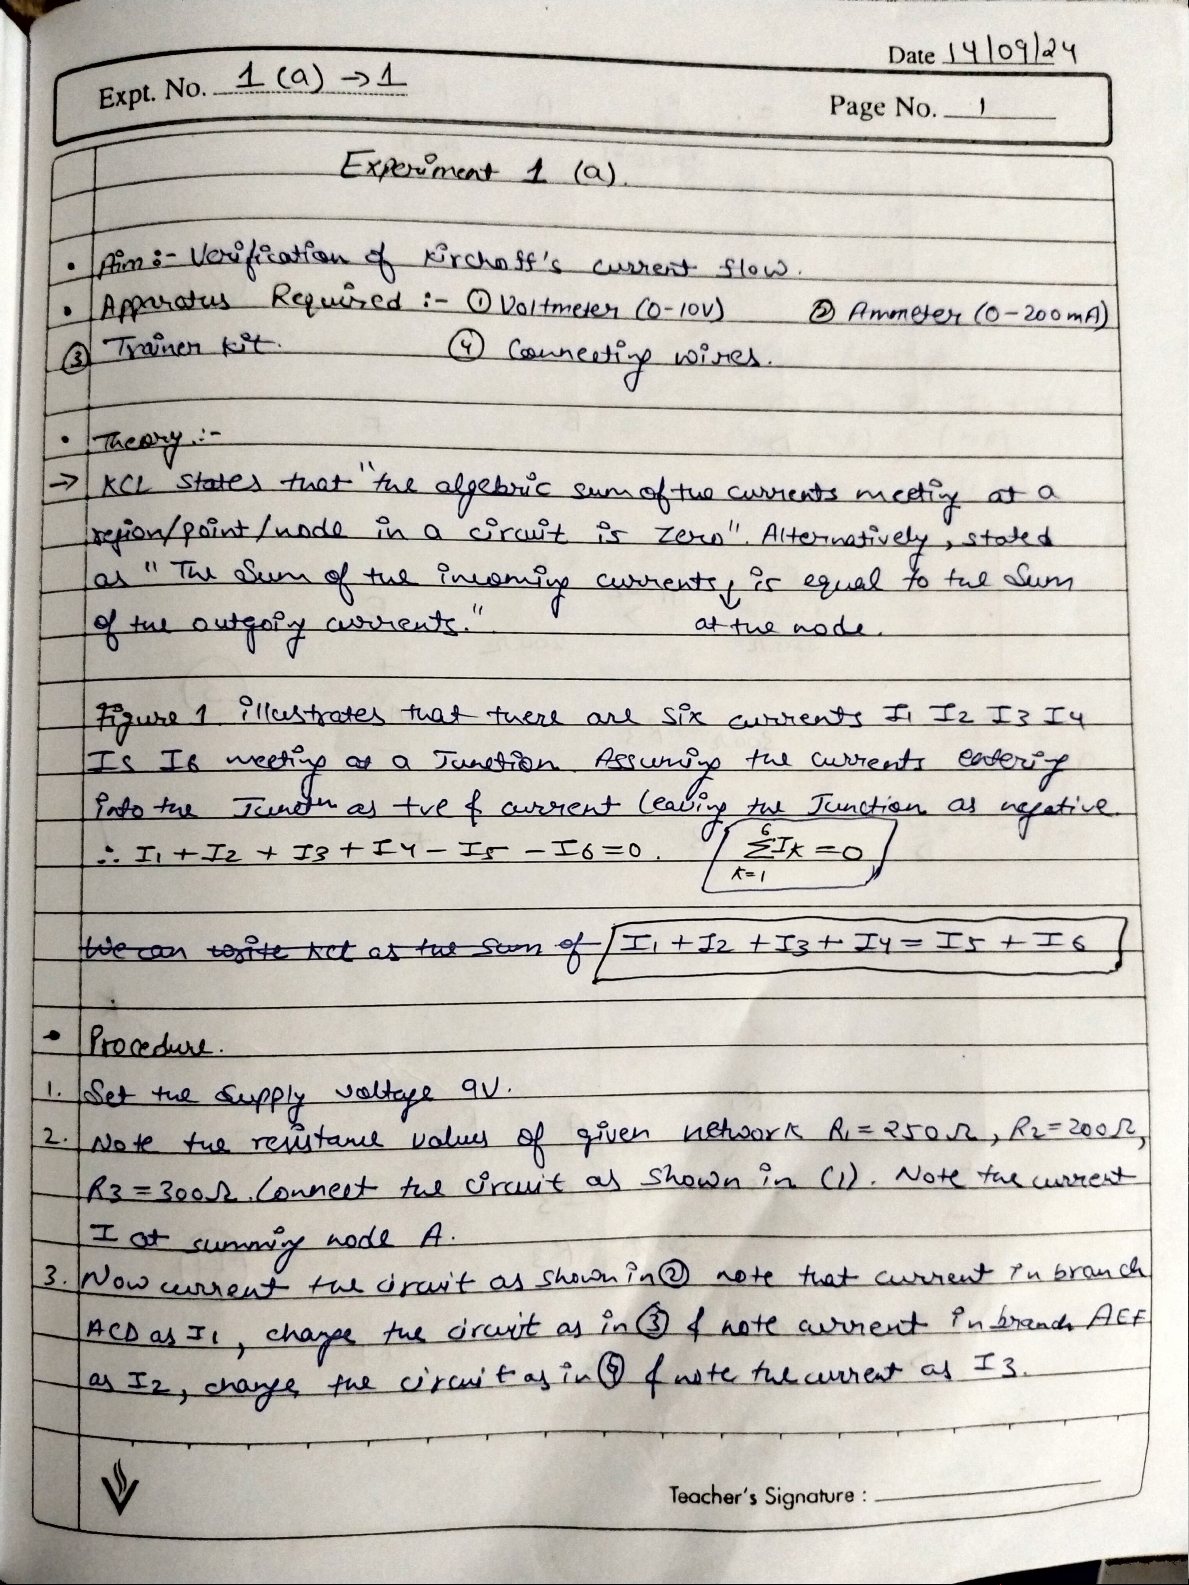 Date 14/09/24
Expt. No. 1 (a) →1
Page No. 1
Experiment 1 (a).
• Aim :- Verification of Kirchoff's current flow.
• Apparatus Required :- ① Voltmeter (0-10V) ② Ammeter (0-200mA)
③ Trainer kit. ④ Connecting wires.
• Theory :-
→ KCL states that "the algebric sum of the currents meeting at a
region/point/node in a circuit is zero". Alternatively, stated
as "The Sum of the incoming currents, is equal to the sum
of the outgoing currents." at the node.
Figure 1 illustrates that there are six currents I1 I2 I3 I4
I5 I6 meeting at a Junction. Assuming the currents entering
into the Junctn as +ve & current leaving the Junction as negative.
∴ I1 + I2 + I3 + I4 - I5 - I6 = 0. 6ΣIK = 0
K=1
We can write KCL as the sum of I1 + I2 + I3 + I4 = I5 + I6
• Procedure.
1. Set the supply voltage 9V.
2. Note the resistance values of given network R1 = 250Ω, R2 = 200Ω,
R3 = 300Ω. Connect the circuit as shown in (1). Note the current
I at summing node A.
3. Now current the circuit as shown in ② note that current in branch
ACD as I1, change the circuit as in ③ & note current in branch AEF
as I2, change the circuit as in ④ & note the current as I3.
Teacher's Signature :